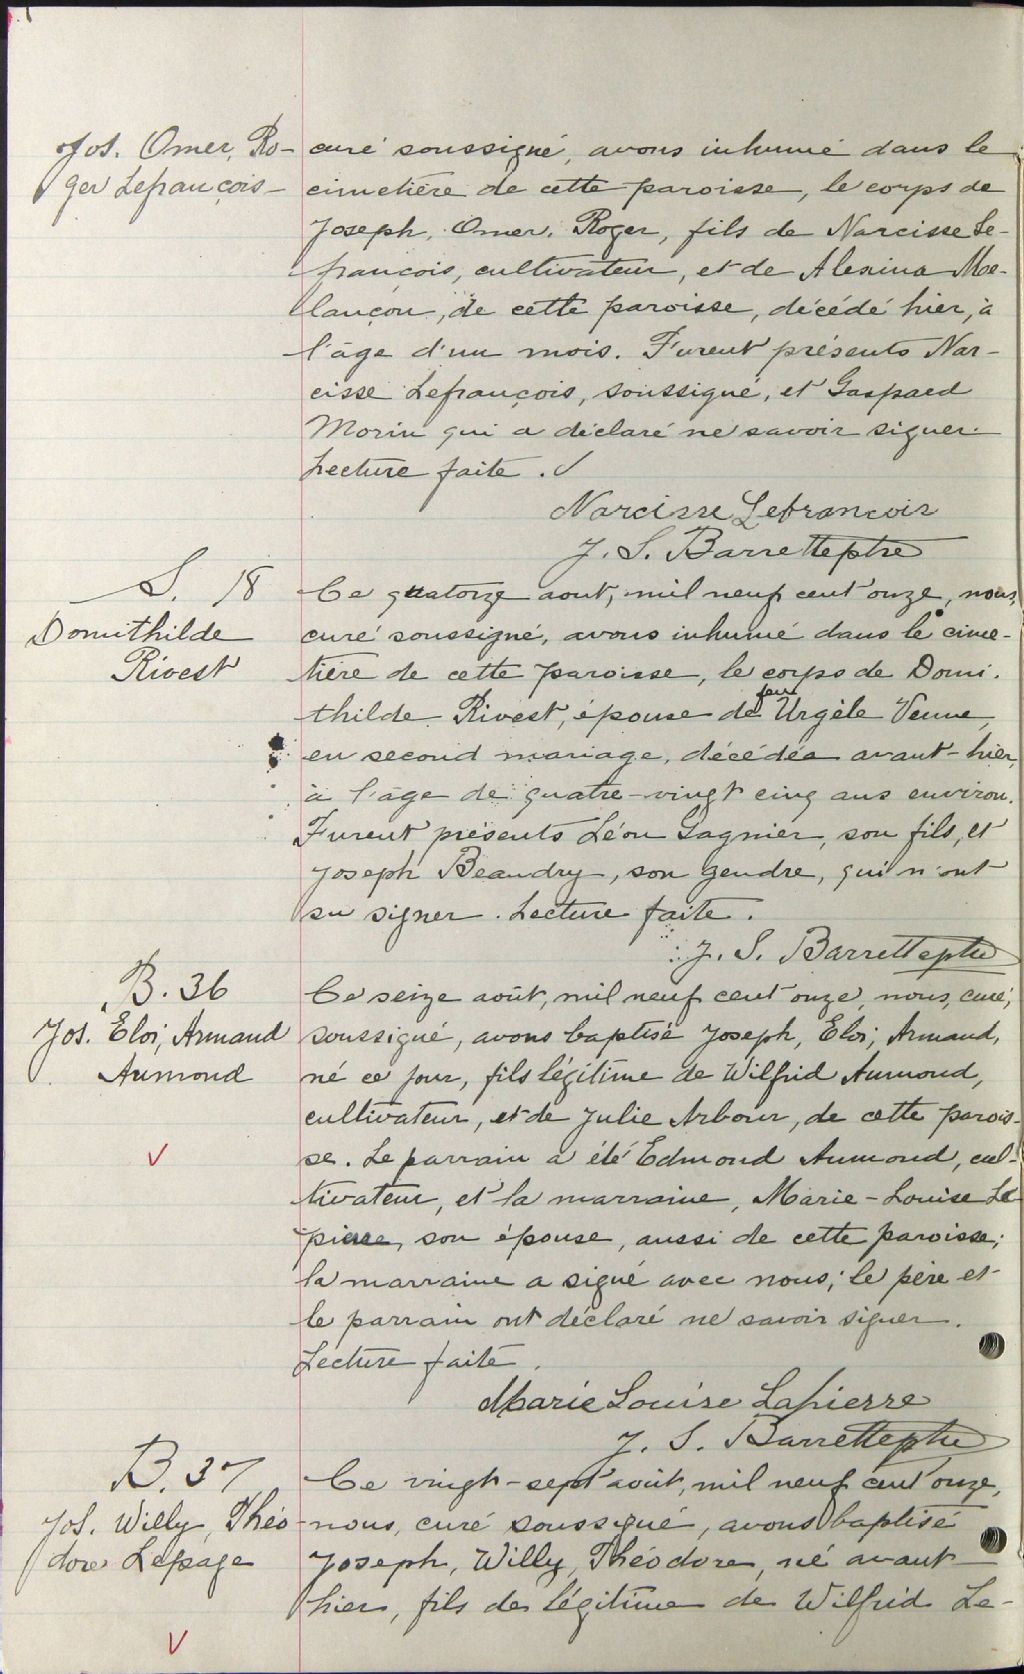 Jos. Omer, Ro-
ger Lefrançois
curé soussigné, avons inhumé dans le
cimetière de cette paroisse, le corps de
Joseph, Omer, Roger, fils de Narcisse Le-
françois, cultivateur, et de Alexina Me-
lançon, de cette paroisse, décédé hier, à
l'âge d'un mois. Furent présents Nar-
cisse Lefrançois, soussigné, et Gaspard
Morin qui a déclaré ne savoir signer.
Lecture faite.
Narcisse Lefrancois
J. S. Barrette ptre
S. 18
Domithilde
Rivest
Ce quatorze aout, mil neuf cent onze, nous,
curé soussigné, avons inhumé dans le cime-
tière de cette paroisse, le corps de Domi-
thilde Rivest, épouse de feu Urgèle Venne,
en second mariage, décédée avant-hier,
à l'âge de quatre-vingt cinq ans environ.
Furent présents Léon Gagnier, son fils, et
Joseph Beaudry, son gendre, qui n'ont
su signer. Lecture faite.
J. S. Barrette ptre
B. 36
Jos. Eloi, Armand
Aumond
Ce seize août, mil neuf cent onze, nous, curé,
soussigné, avons baptisé Joseph, Eloi, Armand,
né ce jour, fils légitime de Wilfrid Aumond,
cultivateur, et de Julie Arbour, de cette parois-
se. Le parrain a été Edmond Aumond, cul-
tivateur, et la marraine, Marie-Louise La
pierre, son épouse, aussi de cette paroisse;
la marraine a signé avec nous; le père et
le parrain ont déclaré ne savoir signer.
Lecture faite.
Marie Louise Lapierre
J. S. Barrette ptre
B. 37
Jos. Willy, Théo
dore Lepage
Ce vingt-sept août, mil neuf cent onze,
nous, curé soussigné, avons baptisé
Joseph, Willy, Théodore, né avant-
hier, fils de légitime de Wilfrid Le-